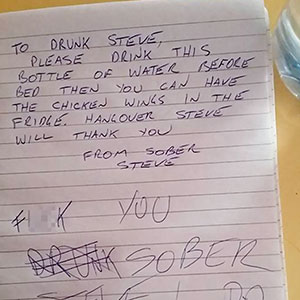 TO DRUNK STEVE,
PLEASE DRINK THIS
BOTTLE OF WATER BEFORE
BED THEN YOU CAN HAVE
THE CHICKEN WINGS IN THE
FRIDGE. HANGOVER STEVE
WILL THANK YOU
FROM SOBER
STEVE
F K YOU
DRUNK SOBER
STEVE I DO